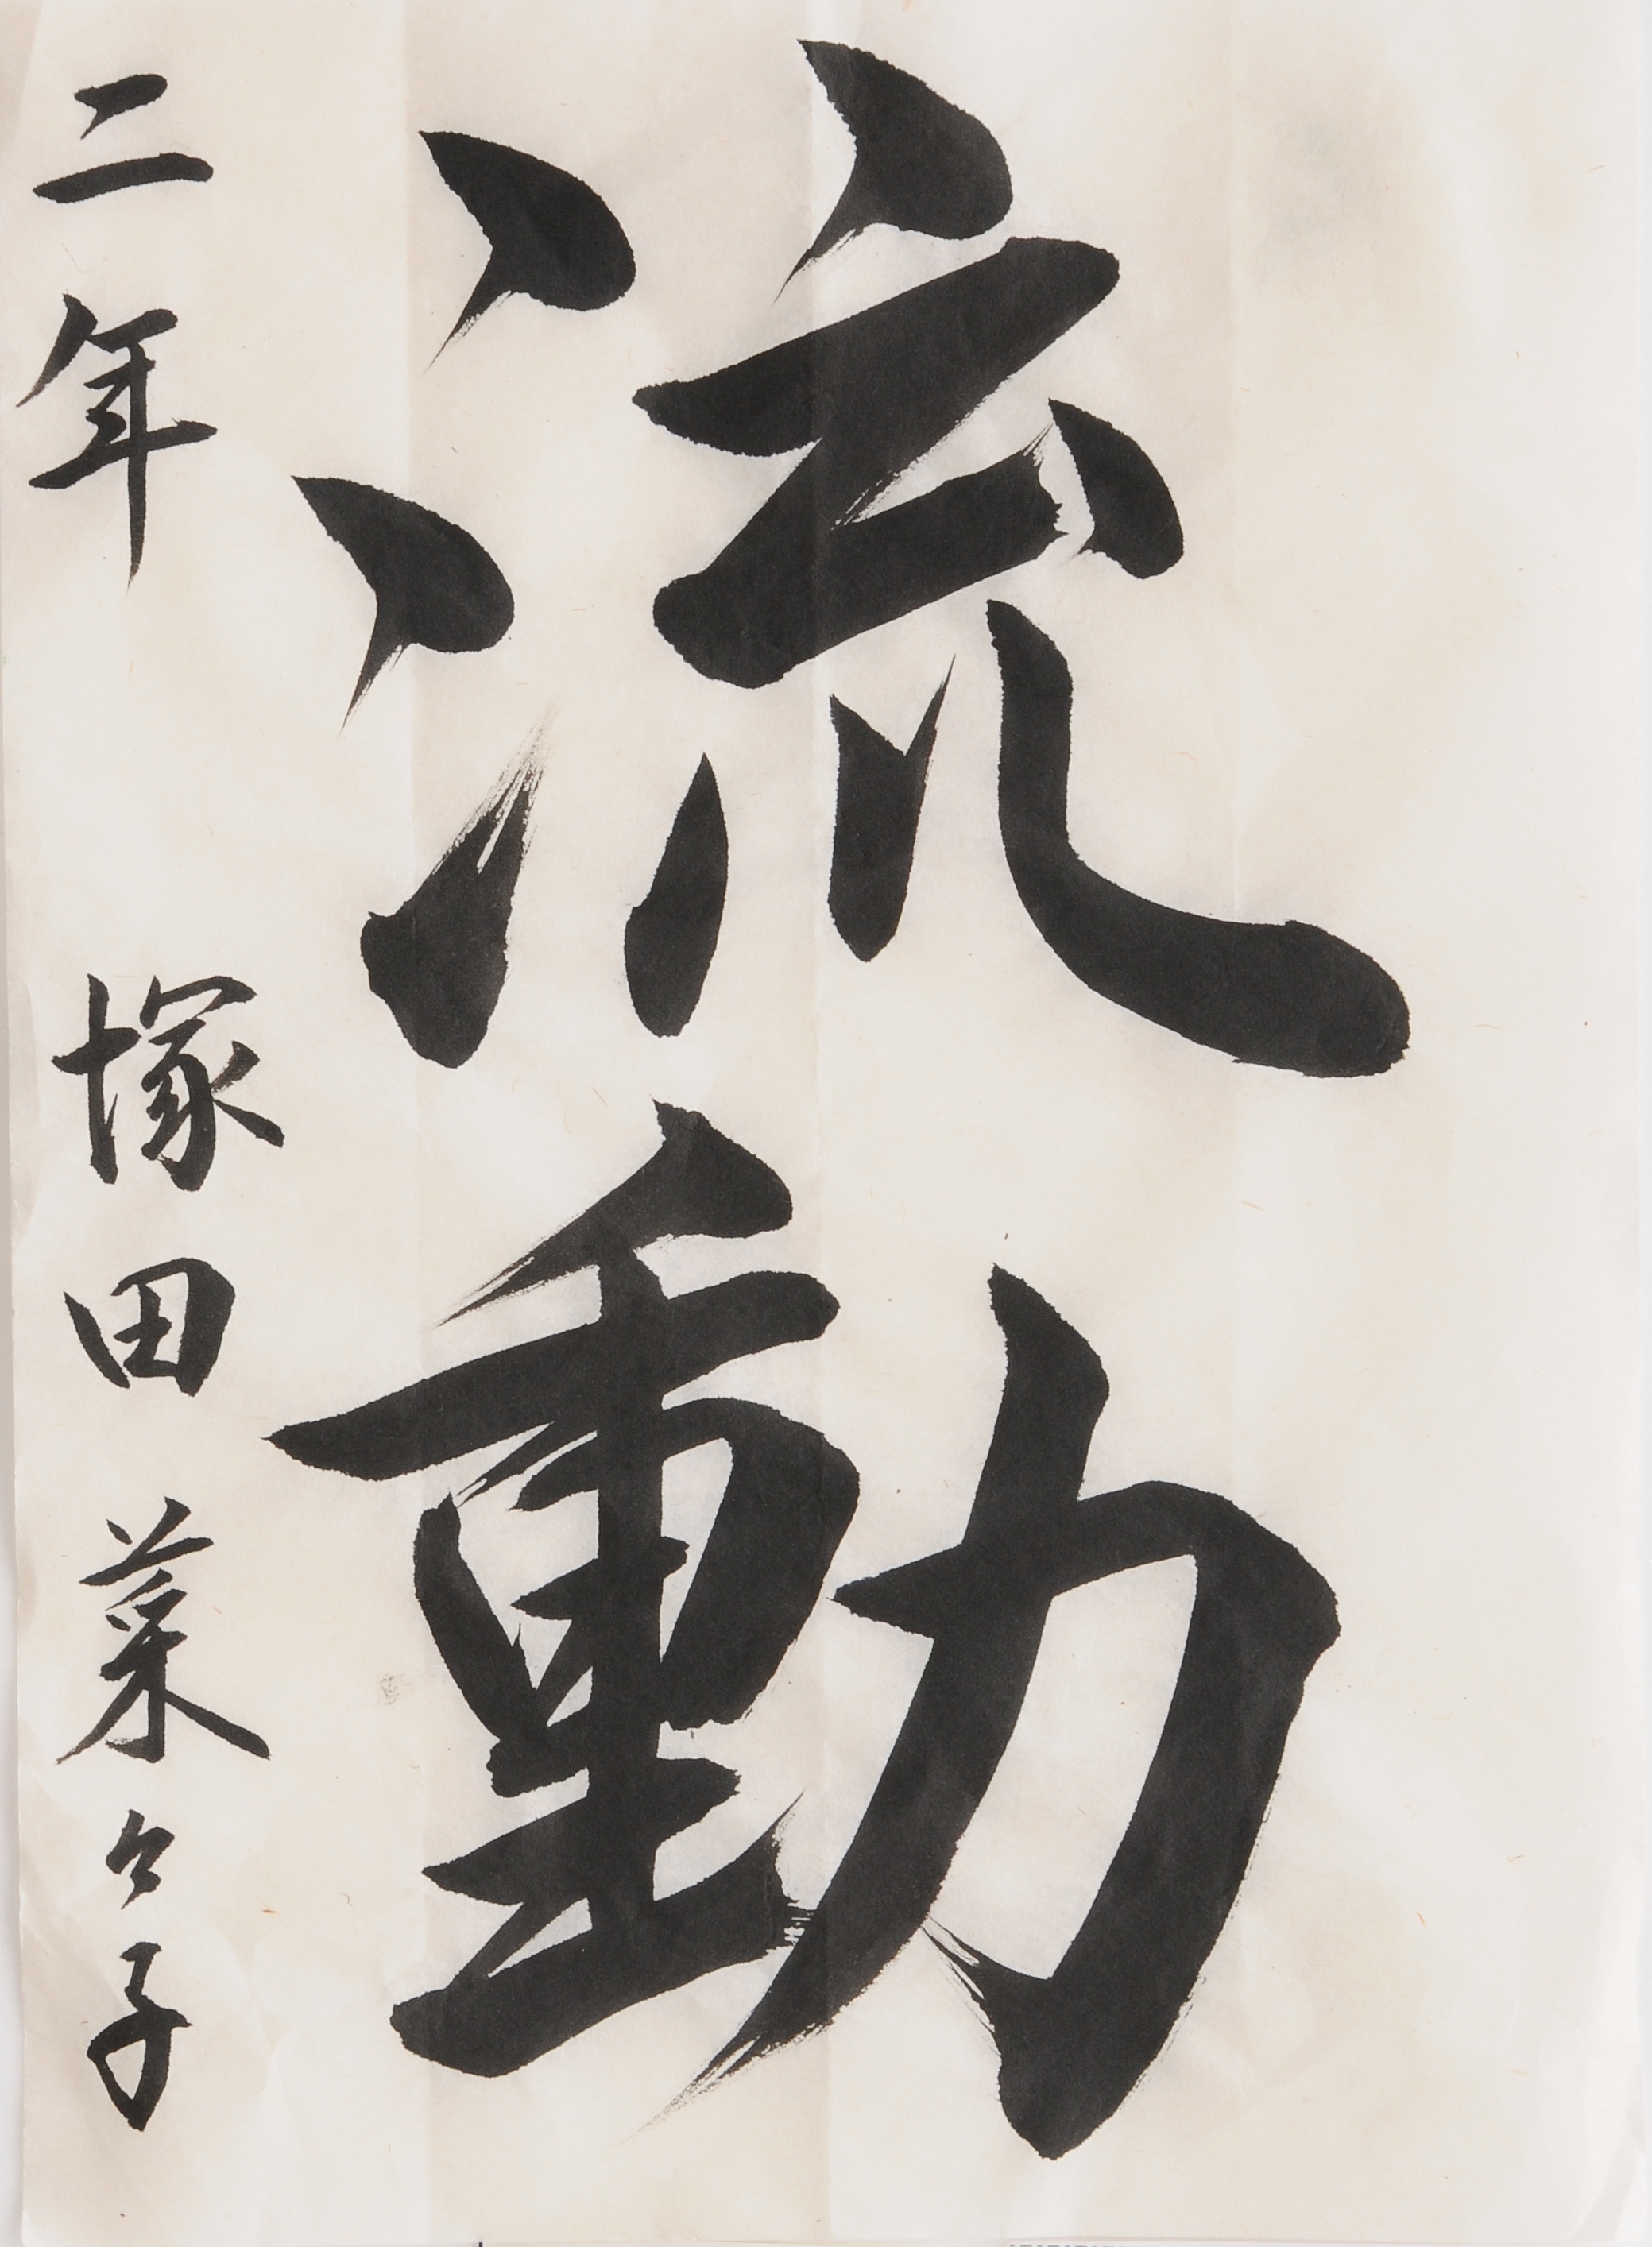 流動
二年 塚田菜々子